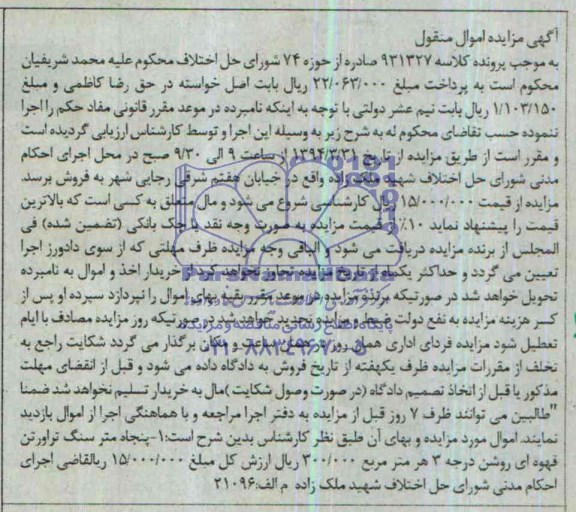 آگهی مزایده اموال منقول
به موجب پرونده کلاسه ۹۳۱۳۲۷ صادره از حوزه ۷۴ شورای حل اختلاف محکوم علیه محمد شریفیان
محکوم است به پرداخت مبلغ ۲۲/۰۶۳/۰۰۰ ریال بابت اصل خواسته در حق رضا کاظمی و مبلغ
۱/۱۰۳/۱۵۰ ریال بابت نیم عشر دولتی با توجه به اینکه نامبرده در موعد مقرر قانونی مفاد حکم را اجرا
ننموده حسب تقاضای محکوم له به شرح زیر به وسیله این اجرا و توسط کارشناس ارزیابی گردیده است
و مقرر است از طریق مزایده از تاریخ ۱۳۹۴/۳/۳۱ از ساعت ۹ الی ۹/۳۰ صبح در محل اجرای احکام
مدنی شورای حل اختلاف شهید ملک زاده واقع در خیابان هفتم شرقی رجایی شهر به فروش برسد.
مزایده از قیمت ۱۵/۰۰۰/۰۰۰ ریال کارشناسی شروع می شود و مال متعلق به کسی است که بالاترین
قیمت را پیشنهاد نماید ۱۰٪ از قیمت مزایده به صورت وجه نقد یا چک بانکی (تضمین شده) فی
المجلس از برنده مزایده دریافت می شود و الباقی وجه مزایده ظرف مهلتی که از سوی دادورز اجرا
تعیین می گردد و حداکثر یکماه از تاریخ مزایده تجاوز نخواهد کرد از خریدار اخذ و اموال به نامبرده
تحویل خواهد شد در صورتیکه برنده مزایده در موعد مقرر بقیه بهای اموال را نپردازد سپرده او پس از
کسر هزینه مزایده به نفع دولت ضبط و مزایده تجدید خواهد شد در صورتیکه روز مزایده مصادف با ایام
تعطیل شود مزایده فردای اداری همان روز در همان ساعت و مکان برگذار می گردد شکایت راجع به
تخلف از مقررات مزایده ظرف یکهفته از تاریخ فروش به دادگاه داده می شود و قبل از انقضای مهلت
مذکور یا قبل از اتخاذ تصمیم دادگاه (در صورت وصول شکایت) مال به خریدار تسلیم نخواهد شد ضمنا
"طالبین می توانند ظرف ۷ روز قبل از مزایده به دفتر اجرا مراجعه و با هماهنگی اجرا از اموال بازدید
نمایند. اموال مورد مزایده و بهای آن طبق نظر کارشناس بدین شرح است:۱-پنجاه متر سنگ تراورتن
قهوه ای روشن درجه ۳ هر متر مربع ۳۰۰/۰۰۰ ریال ارزش کل مبلغ ۱۵/۰۰۰/۰۰۰ ریالقاضی اجرای
احکام مدنی شورای حل اختلاف شهید ملک زاده م الف:۲۱۰۹۶
پایگاه اطلاع رسانی مناقصه و مزایده
۰۲۱-۸۸۳۴۹۶۷۰-۵